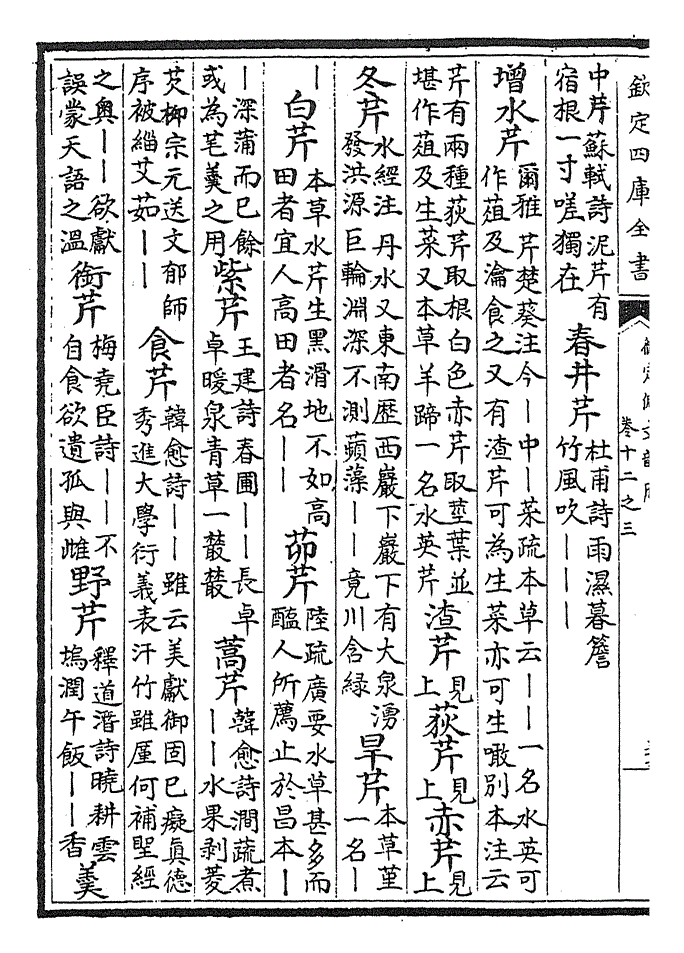 欽定四庫全書
卷十二之三
中芹蘇軾詩泥芹有宿根一寸嗟獨在 春井芹 杜甫詩雨濕暮簷竹風吹｜｜｜
增水芹 爾雅芹楚葵注今｜中｜菜疏本草云｜｜一名水英可作葅及瀹食之又有渣芹可為生菜亦可生噉別本注云
芹有兩種荻芹取根白色赤芹取莖葉並堪作葅及生菜又本草羊蹄一名水英芹 渣芹 見上 荻芹 見上 赤芹 見上
冬芹 水經注丹水又東南歷西巖下巖下有大泉湧發洪源巨輪淵深不測蘋藻｜｜竟川含緑 旱芹 本草堇一名｜
｜ 白芹 本草水芹生黑滑地不如高田者宜人高田者名｜｜ 茆芹 陸疏廣要水草甚多而醢人所薦止於昌本｜
｜深蒲而已餘或為芼羹之用 紫芹 王建詩春圃｜｜長卓卓暖泉青草一叢叢 蒿芹 韓愈詩澗蔬煮｜｜水果剥菱
芡柳宗元送文郁師序被緇艾茹｜｜ 食芹 韓愈詩｜｜雖云美獻御固已癡真德秀進大學衍義表汗竹雖厪何補聖經
之奥｜｜欲獻誤蒙天語之溫 銜芹 梅堯臣詩｜｜不自食欲遺孤與雌 野芹 釋道潛詩曉耕雲塢潤午飯｜｜香 羹